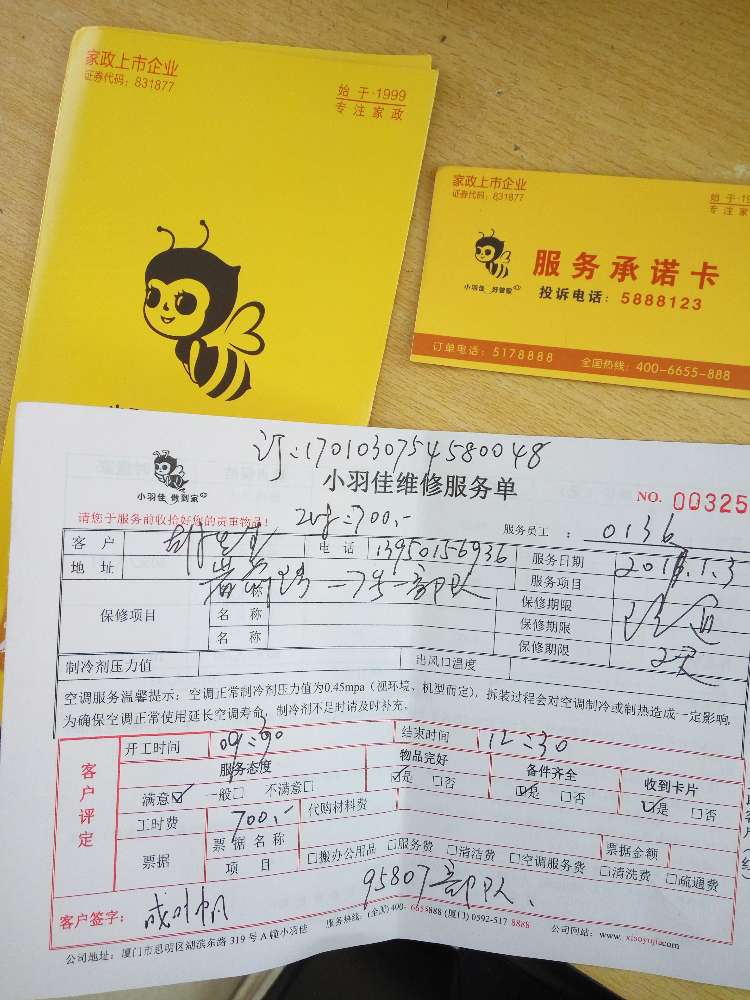 家政上市企业
证券代码：831877
始于·1999
专注家政
家政上市企业
证券代码：831877
始于·19
专注家
小羽佳 好管家
服务承诺卡
投诉电话：5888123
订单电话：5178888 全国热线：400-6655-888
订：1701030754580048
小羽佳 做到家
小羽佳维修服务单
NO. 00325
请您于服务前收拾好您的贵重物品！
700,-
服务员工 ： 0136
客 户 电 话 13950156936 服务日期
地 址 服务项目
保修项目 名 称 保修期限
名 称 保修期限
名 称 保修期限 2天
制冷剂压力值 出风口温度
空调服务温馨提示：空调正常制冷剂压力值为0.45mpa（视环境、机型而定），拆装过程会对空调制冷或制热造成一定影响，
为确保空调正常使用延长空调寿命，制冷剂不足时请及时补充。
客户评定
开工时间 结束时间 12:30
服务态度 物品完好 备件齐全 收到卡片
满意☑ 一般□ 不满意□ ☑是 □否 ☑是 □否 ☑是 □否
工时费 700,- 代购材料费
票据 票据名称 票据金额
项 目 □搬办公用品 □服务费 □清洁费 □空调服务费 □清洗费 □疏通费
客户签字： 95807部队
服务热线：(全国)400-6655888 (厦门) 0592-517 8888 公司网站：www.xiaoyujia.com
公司地址：厦门市思明区湖滨东路 319 号 A 幢小羽佳